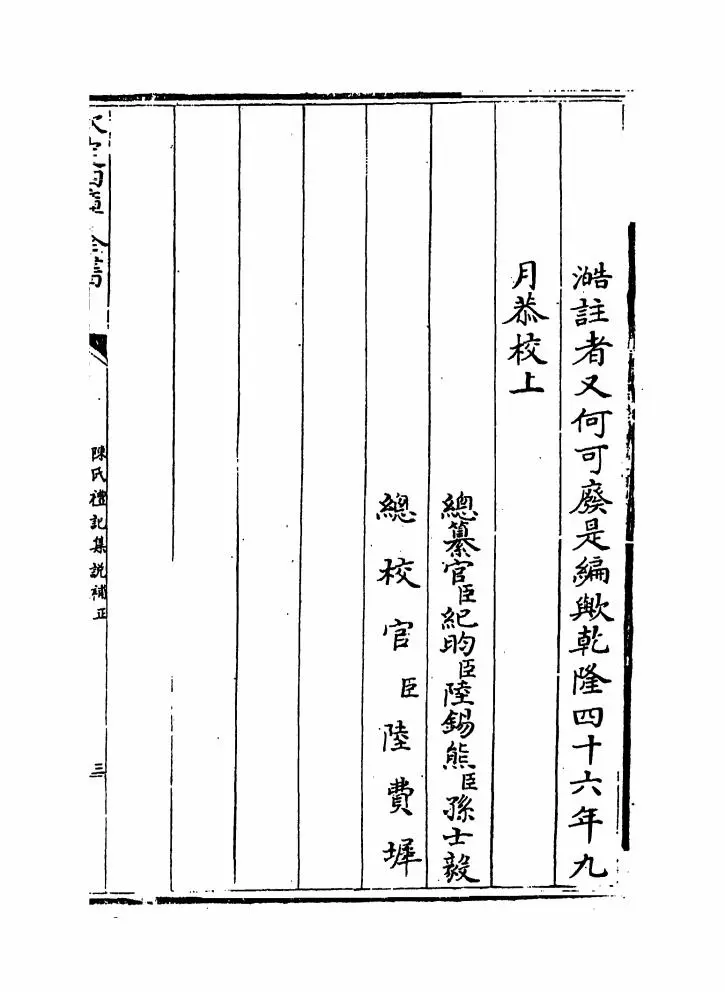 澔註者又何可廢是編歟乾隆四十六年九
月恭校上
總纂官臣紀昀臣陸錫熊臣孫士毅
總校官臣陸費墀
欽定四庫全書
陳氏禮記集說補正
三